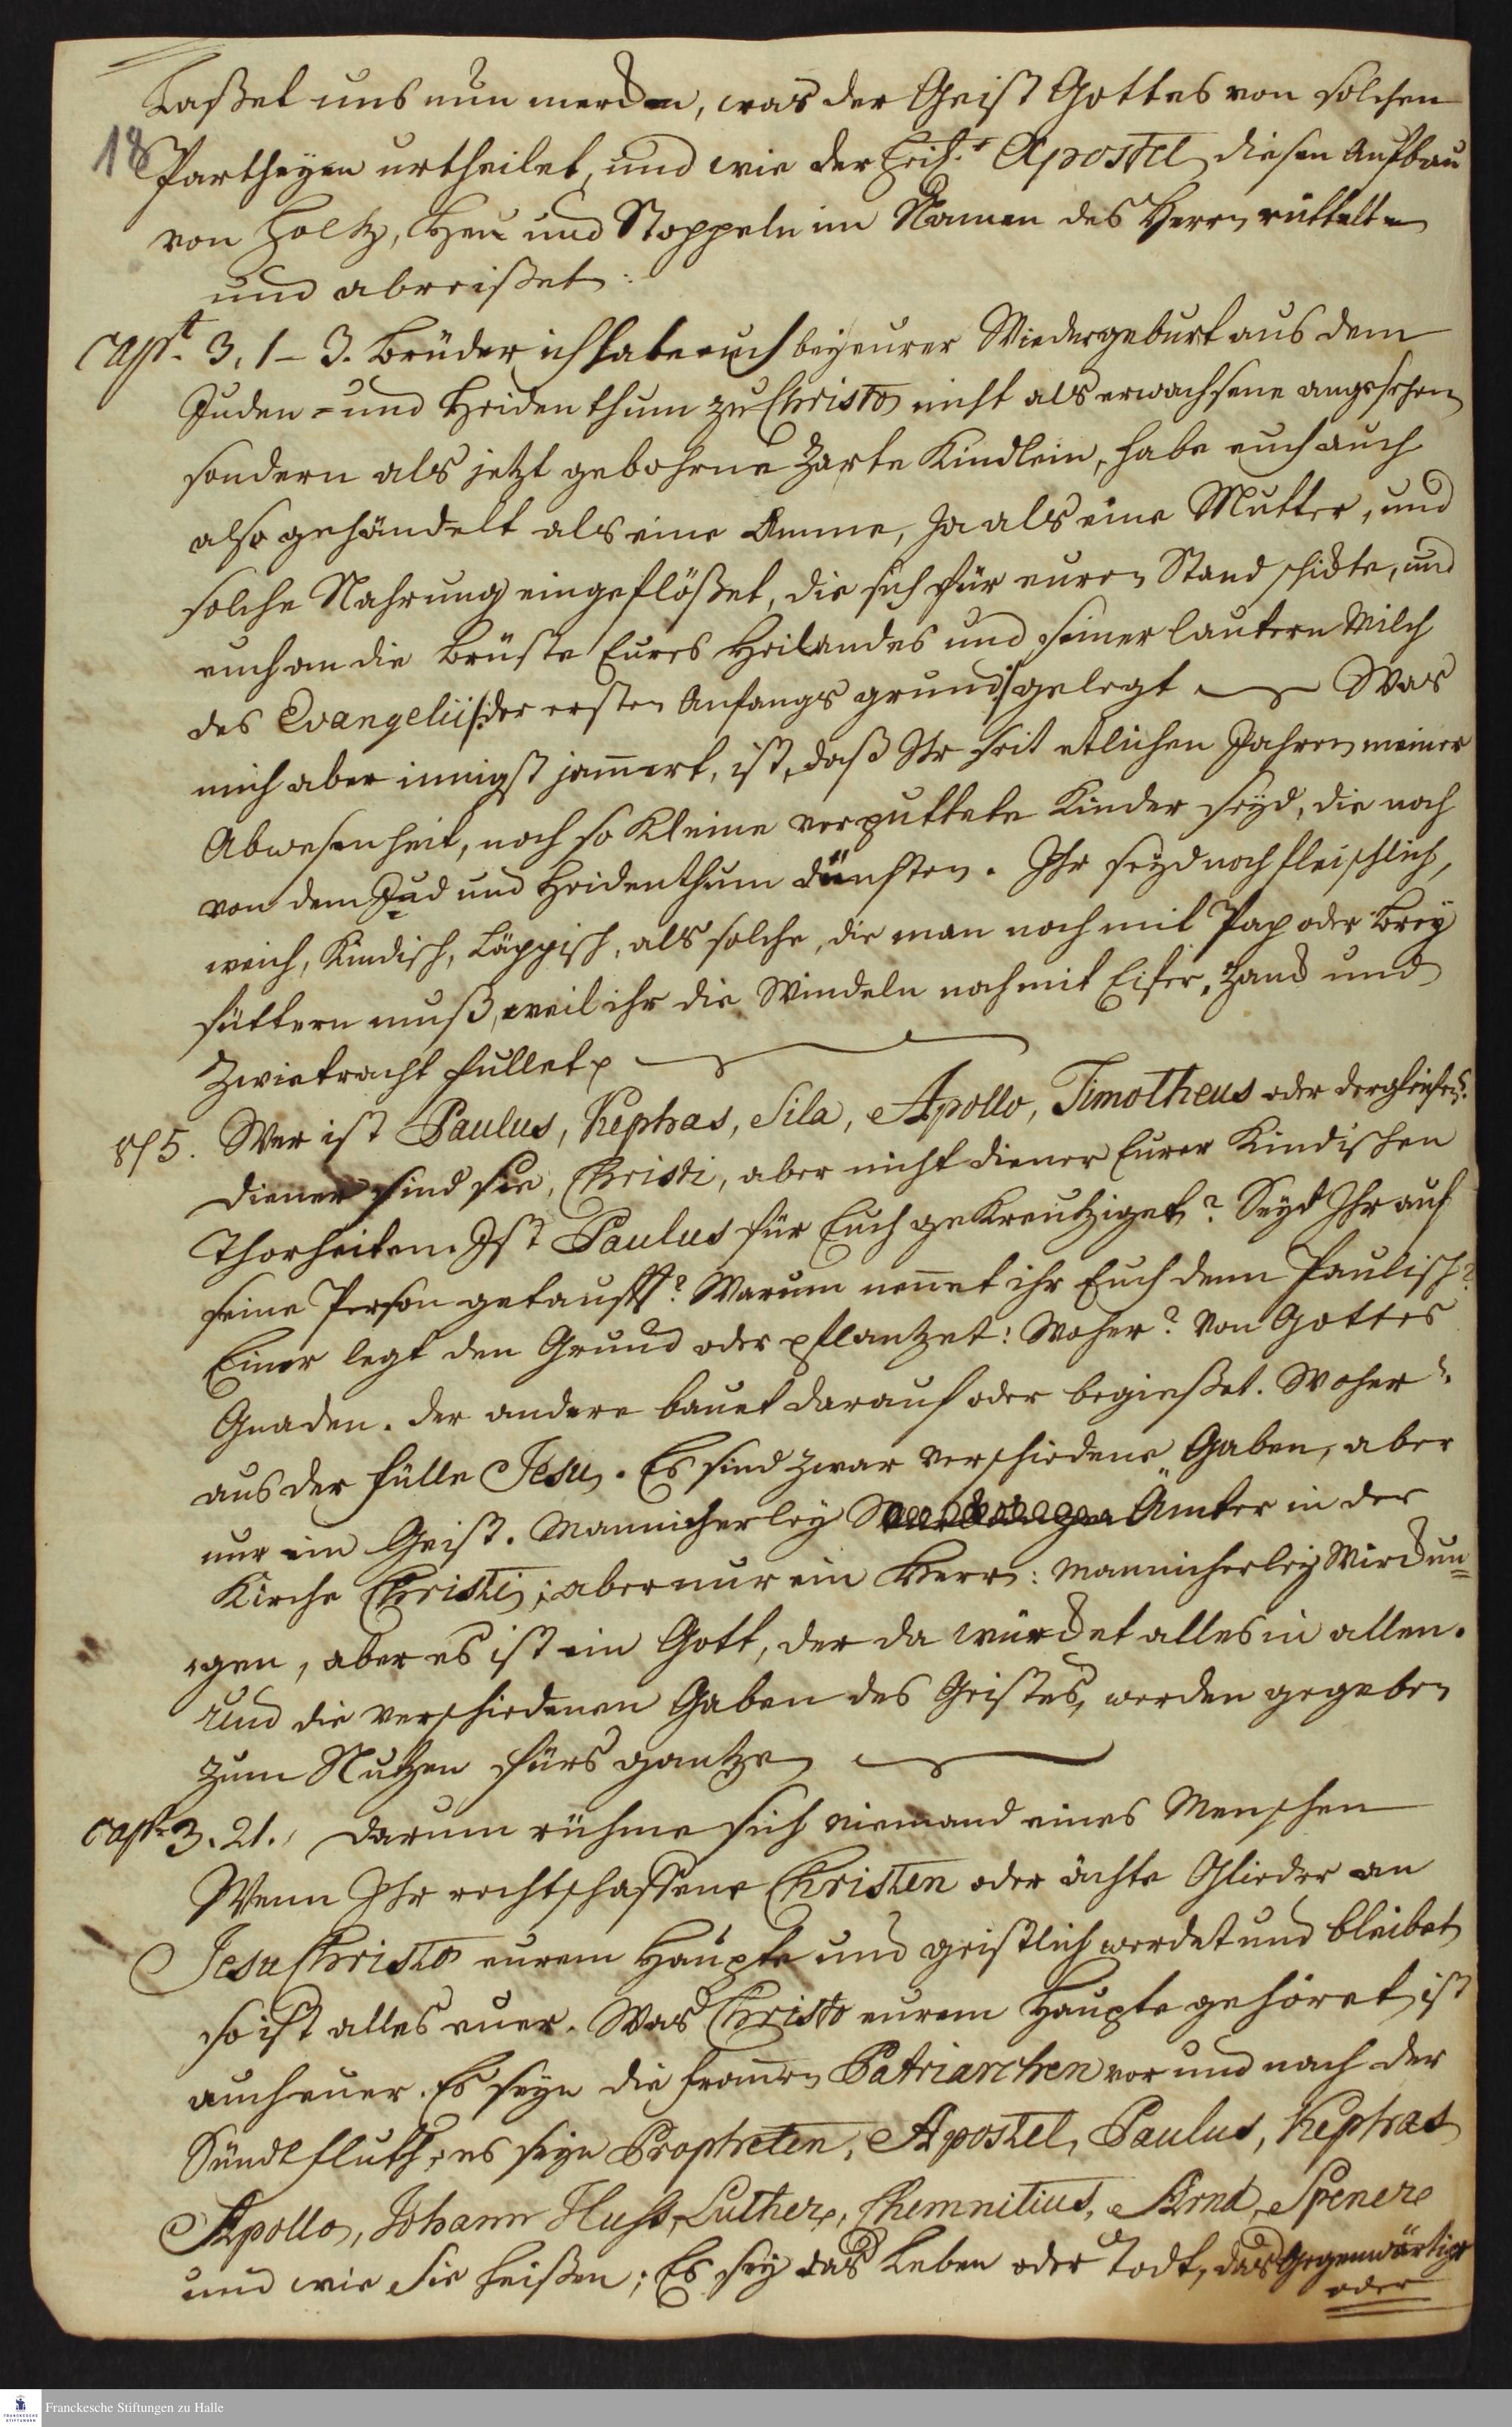 Laßet uns nun merken, was der Geist Gottes von solchen
18
Partheyen urtheilet, und wie der Heil. Apostel diesen Aufbau
von Holtz, Heu und Stoppeln im Namen des Herrn rüttelt
und abreißet:
Capt. 3, 1-3. Brüder ich habe euch bey eurer Wiedergeburt aus dem
Juden- und Heidenthum zu Christo nicht als erwachsene angesehen
sondern als jetzt gebohrne zarte Kindlein, habe euch auch
also gehändelt als eine Amme, Ja als eine Mutter, und
solche Nahrung eingeflößet, die sich für euren Stand schickte, und
euch an die Brüste Eures Heilandes und seiner lautern Milch
des Evangelii /:der ersten Anfangs grund:/ gelegt Was
mich aber innigst jam̄ert, ist, daß Ihr seit etlichen Jahren meiner
Abwesenheit, noch so kleine verputtete Kinder seyd, die noch
von dem Jud und Heidenthum dünsten. Ihr seyd noch fleischlich,
weich, Kindisch, Läppisch, als solche, die man noch mit Pap oder Brey
füttern muß, weil ihr die Windeln noch mit Eifer, Zank und
Zwietracht füllet
vs 5. Wer ist Paulus, Kephas, Sila, Apollo, Timotheus oder dergleichen?
Diener sind sie, Christi, aber nicht diener Eurer Kindischen
Thorheiten. Ist Paulus für Euch gekreutziget? Seyd Ihr auf
seine Person getaufft? Warum nen̄et ihr Euch denn Paulisch?
Einer legt den Grund oder pflantzet: Woher? Von Gottes
Gnaden. der andere bauet darauf oder begießet. Woher?
aus der fülle Jesu. Es sind zwar verschiedene Gaben, aber
nur ein Geist. Mannicherley Ämter in der
Kirche Christi; aber nur ein Herr: Mannicherley Wirckun=
gen, aber es ist ein Gott, der da würcket alles in allen.
Und die verschiedenen Gaben des Geistes, werden gegeben
zum Nutzen fürs gantze
Capt. 3. 21. Darum rühme sich niemand eines Menschen
Wenn Ihr rechtschaffene Christen oder ächte Glieder an
Jesu Christo eurem Haupte und geistlich werdet und bleibet
so ist alles euer. Was Christo eurem Haupte gehöret, ist
auch euer. Es seyn die from̄en Patriarchen vor und nach der
Sündtfluth, es seyn Propheten, Apostel, Paulus, Kephas
Apollo, Johann Huss, Luther, Chemnitius, Arnd, Spener
und wie sie heißen; Es sey das Leben oder Todt, das Gegenwärtige
oder
Franckesche Stiftungen zu Halle